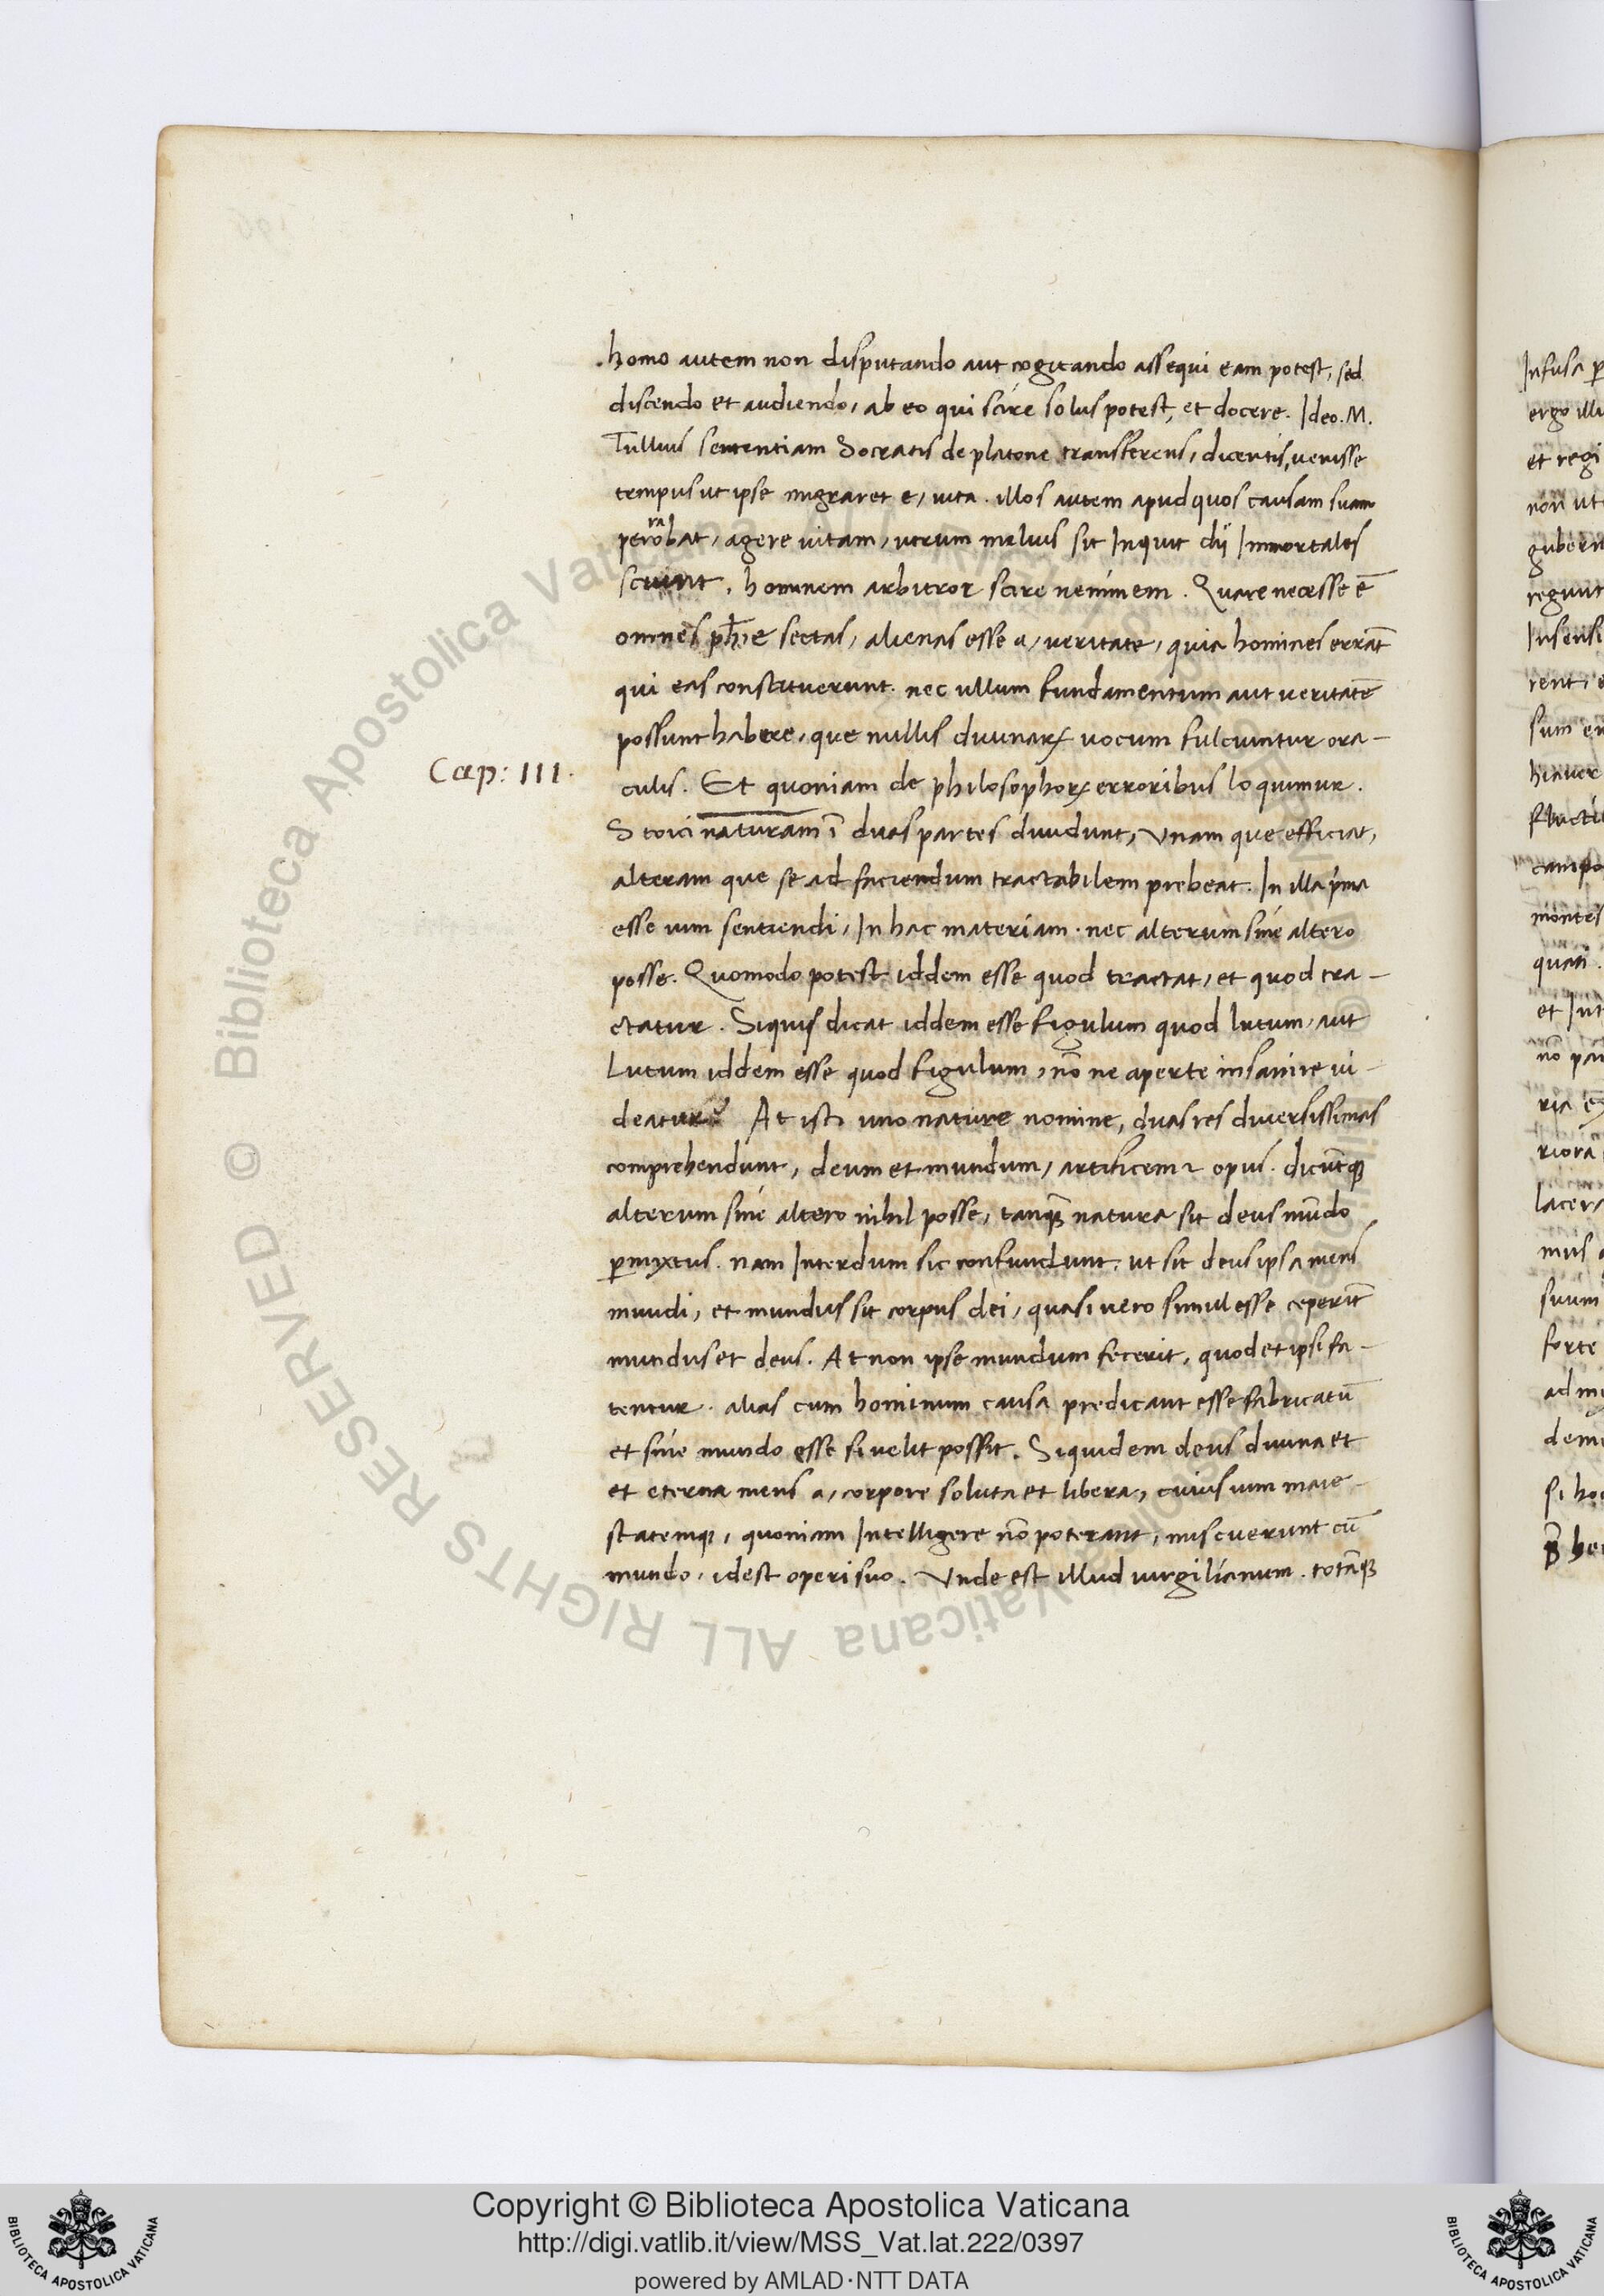 homo autem non disputando aut cogitando assequi eam potest, sed
discendo et audiendo, ab eo qui scire solus potest, et docere. Ideo. M.
Tullius sententiam Socratis de platone transferens, dicentis, uenisse
tempus ut ipse migraret e, uita. illos autem apud quos causam suam
perorabat, agere uitam, utrum melius sit Inquit dij Immortales
sciunt, hominem arbitror scire neminem. Quare necesse ē
omnes ph̄ie sectas, alienas esse a, ueritate, quia homines errāt
qui eas constituerunt. nec ullum fundamentum aut ueritatē
possunt habere, que nullis diuinaꝝ uocum fulciuntur ora-
Cap: III.
culis. Et quoniam de philosophoꝝ erroribus loquimur.
Stoici naturam ī duas partes diuidunt, Vnam que efficiat,
alteram que se ad faciendum tractabilem prebeat. In illa p̓ma
esse uim sentiendi, In hac materiam. nec alterum sine altero
posse. Quomodo potest iddem esse quod tractat, et quod tra-
ctatur. Siquis dicat iddem esse figulum quod lutum, aut
Lutum iddem esse quod figulum, nō ne aperte insanire ui-
deatur? At isti uno nature nomine, duas res diuersissimas
comprehendunt, deum et mundum, artificem ⁊ opus. dicūtqꝫ
alterum sine altero nihil posse, tanqꝫ̄ natura sit deus mūdo
ꝑmixtus. nam Interdum sic confundunt, ut sit deus ipsa mens
mundi, et mundus sit corpus dei, quasi uero simul esse ceperīt
mundus et deus. At non ipse mundum fecerit, quod et ipsi fa-
tentur. alias cum hominum causa predicant esse fabricatū
et sine mundo esse si uelit possit. Siquidem deus diuina et
et eterna mens a, corpore soluta et libera, cuius uim maie-
statemqꝫ, quoniam Intelligere nō poterant, miscuerunt cū
mundo, idest operi suo. Vnde est illud uirgilianum. totāqꝫ
Copyright © Biblioteca Apostolica Vaticana
http://digi.vatlib.it/view/MSS_Vat.lat.222/0397
powered by AMLAD·NTT DATA